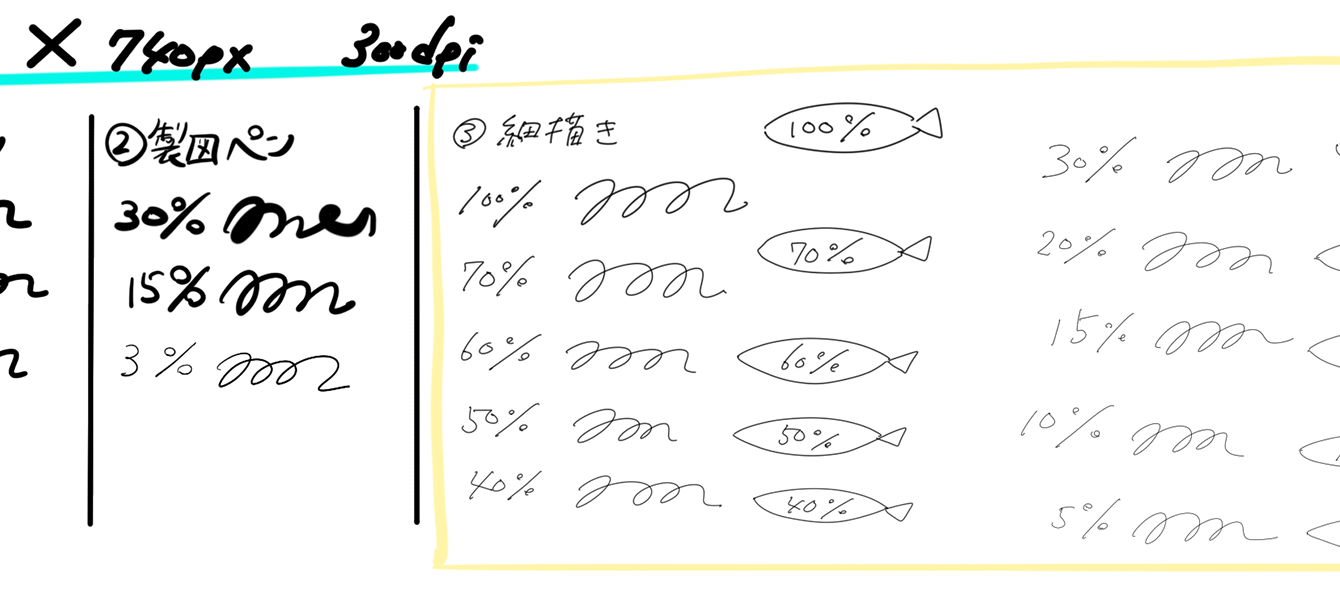 × 740px 300dpi
②製図ペン
30%
15%
3%
③細描き
100%
70%
60%
50%
40%
100%
70%
60%
50%
40%
30%
20%
15%
10%
5%